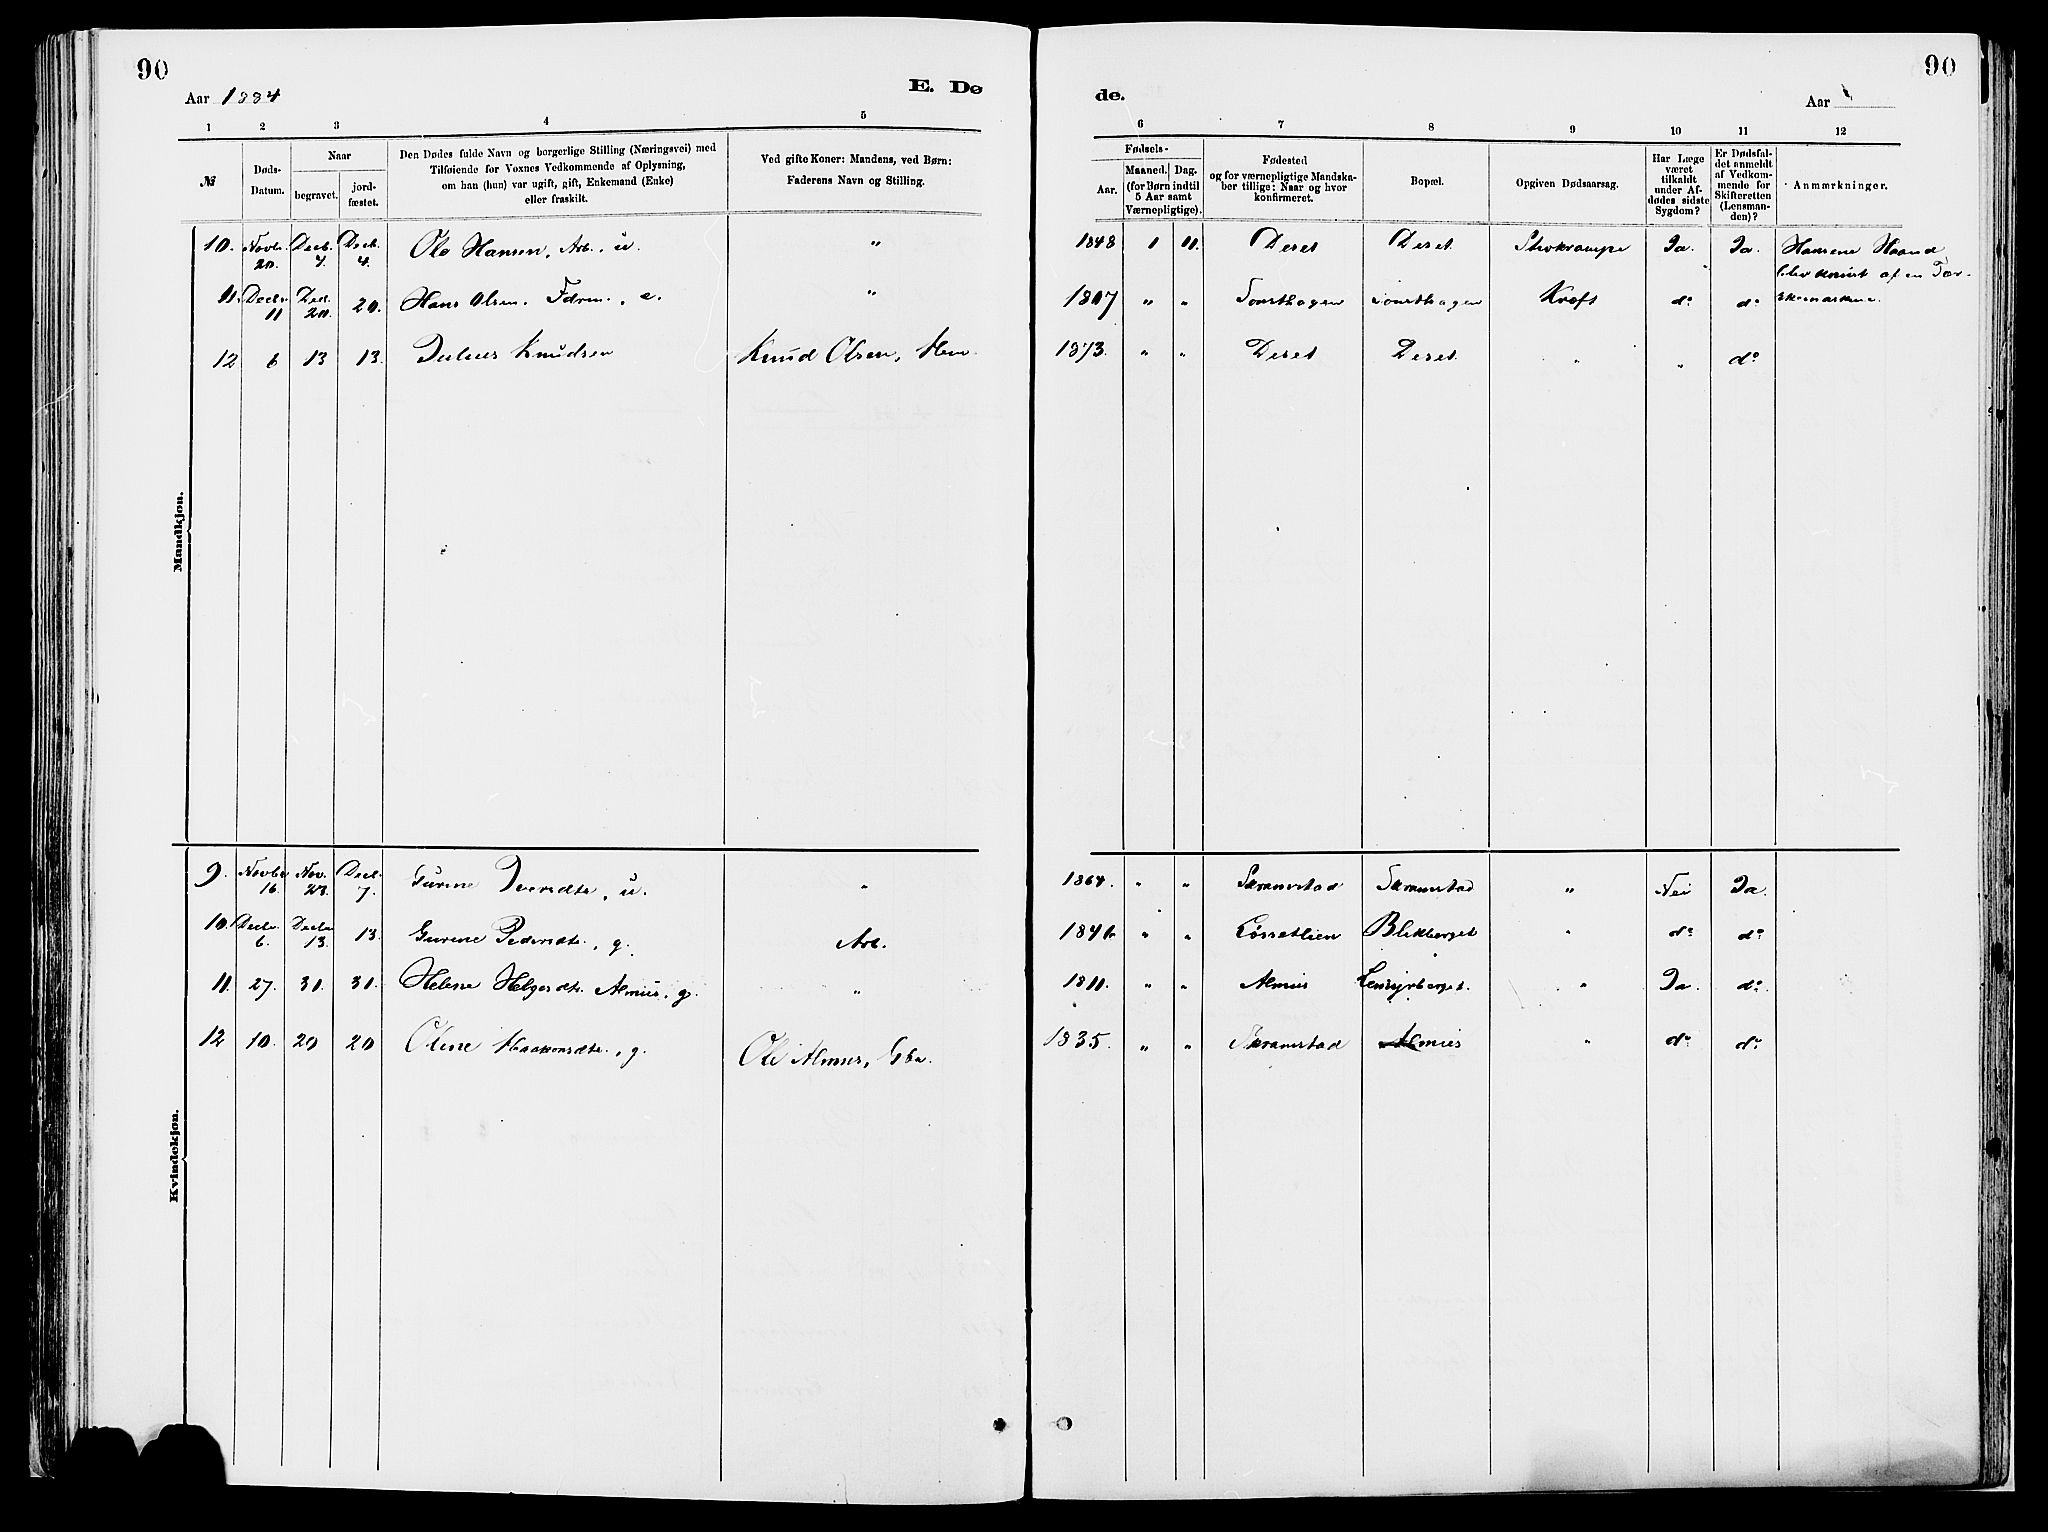 90
90
Aar 1884
E. Dø
de.
Aar
1 2 3 4 5 6 7 8 9 10 11 12
№
Døds-Datum.
Naar
begravet. jord-fæstet.
Den Dødes fulde Navn og borgerlige Stilling (Næringsvei) med
Tilføiende for Voxnes Vedkommende af Oplysning,
om han (hun) var ugift, gift, Enkemand (Enke)
eller fraskilt.
Ved gifte Koner: Mandens, ved Børn:
Faderens Navn og Stilling.
Fødsels-
Aar.
Maaned. Dag.
(for Børn indtil
5 Aar samt
Værnepligtige).
Fødested
og for værnepligtige Mandska-
ber tillige: Naar og hvor
konfirmeret.
Bopæl.
Opgiven Dødsaarsag.
Har Læge
været
tilkaldt
under Af-
dødes sidste
Sygdom?
Er Dødsfal-
det anmeldt
af Vedkom-
mende for
Skifteretten
(Lensman-
den)?
Anmærkninger.
Mandkjøn.
10. Novbr. 20. Decb. 4. Decb. 4. Ole Hansen, Arb., u. " 1848 1 11. Deset Deset Stivkrampe Ja. Ja. Hansens Haand
blev knust af en Tær-
skemaskine.
11. Decbr 11 Dec. 20. 20. Hans Olsen, Fdrm., e. " 1807 " " Kræft do do
12 6 13 13. Julius Knudsen Knud Olsen, Hm. 1873. " " Deset Deset " " do
Kvindekjøn.
9. Novbr 16. Nov. 23. Decb. 7. Gurine Iversdtr., u. " 1864. " " Skramstad Skramstad " Nei Ja.
10. Decbr. 6. Decbr 13. 13. Gurine Pedersdtr., g. Arb. " " Løssetlien Blikberget " do do
11. 27. 31. 31. Helene Helgesdtr. Almus, g. " 1811. " " Almus " Ja. do
12 10. 20 20 Oline Haakensdtr., g. Ole Almus, Gbr. 1835. " " Skramstad Almus " do do